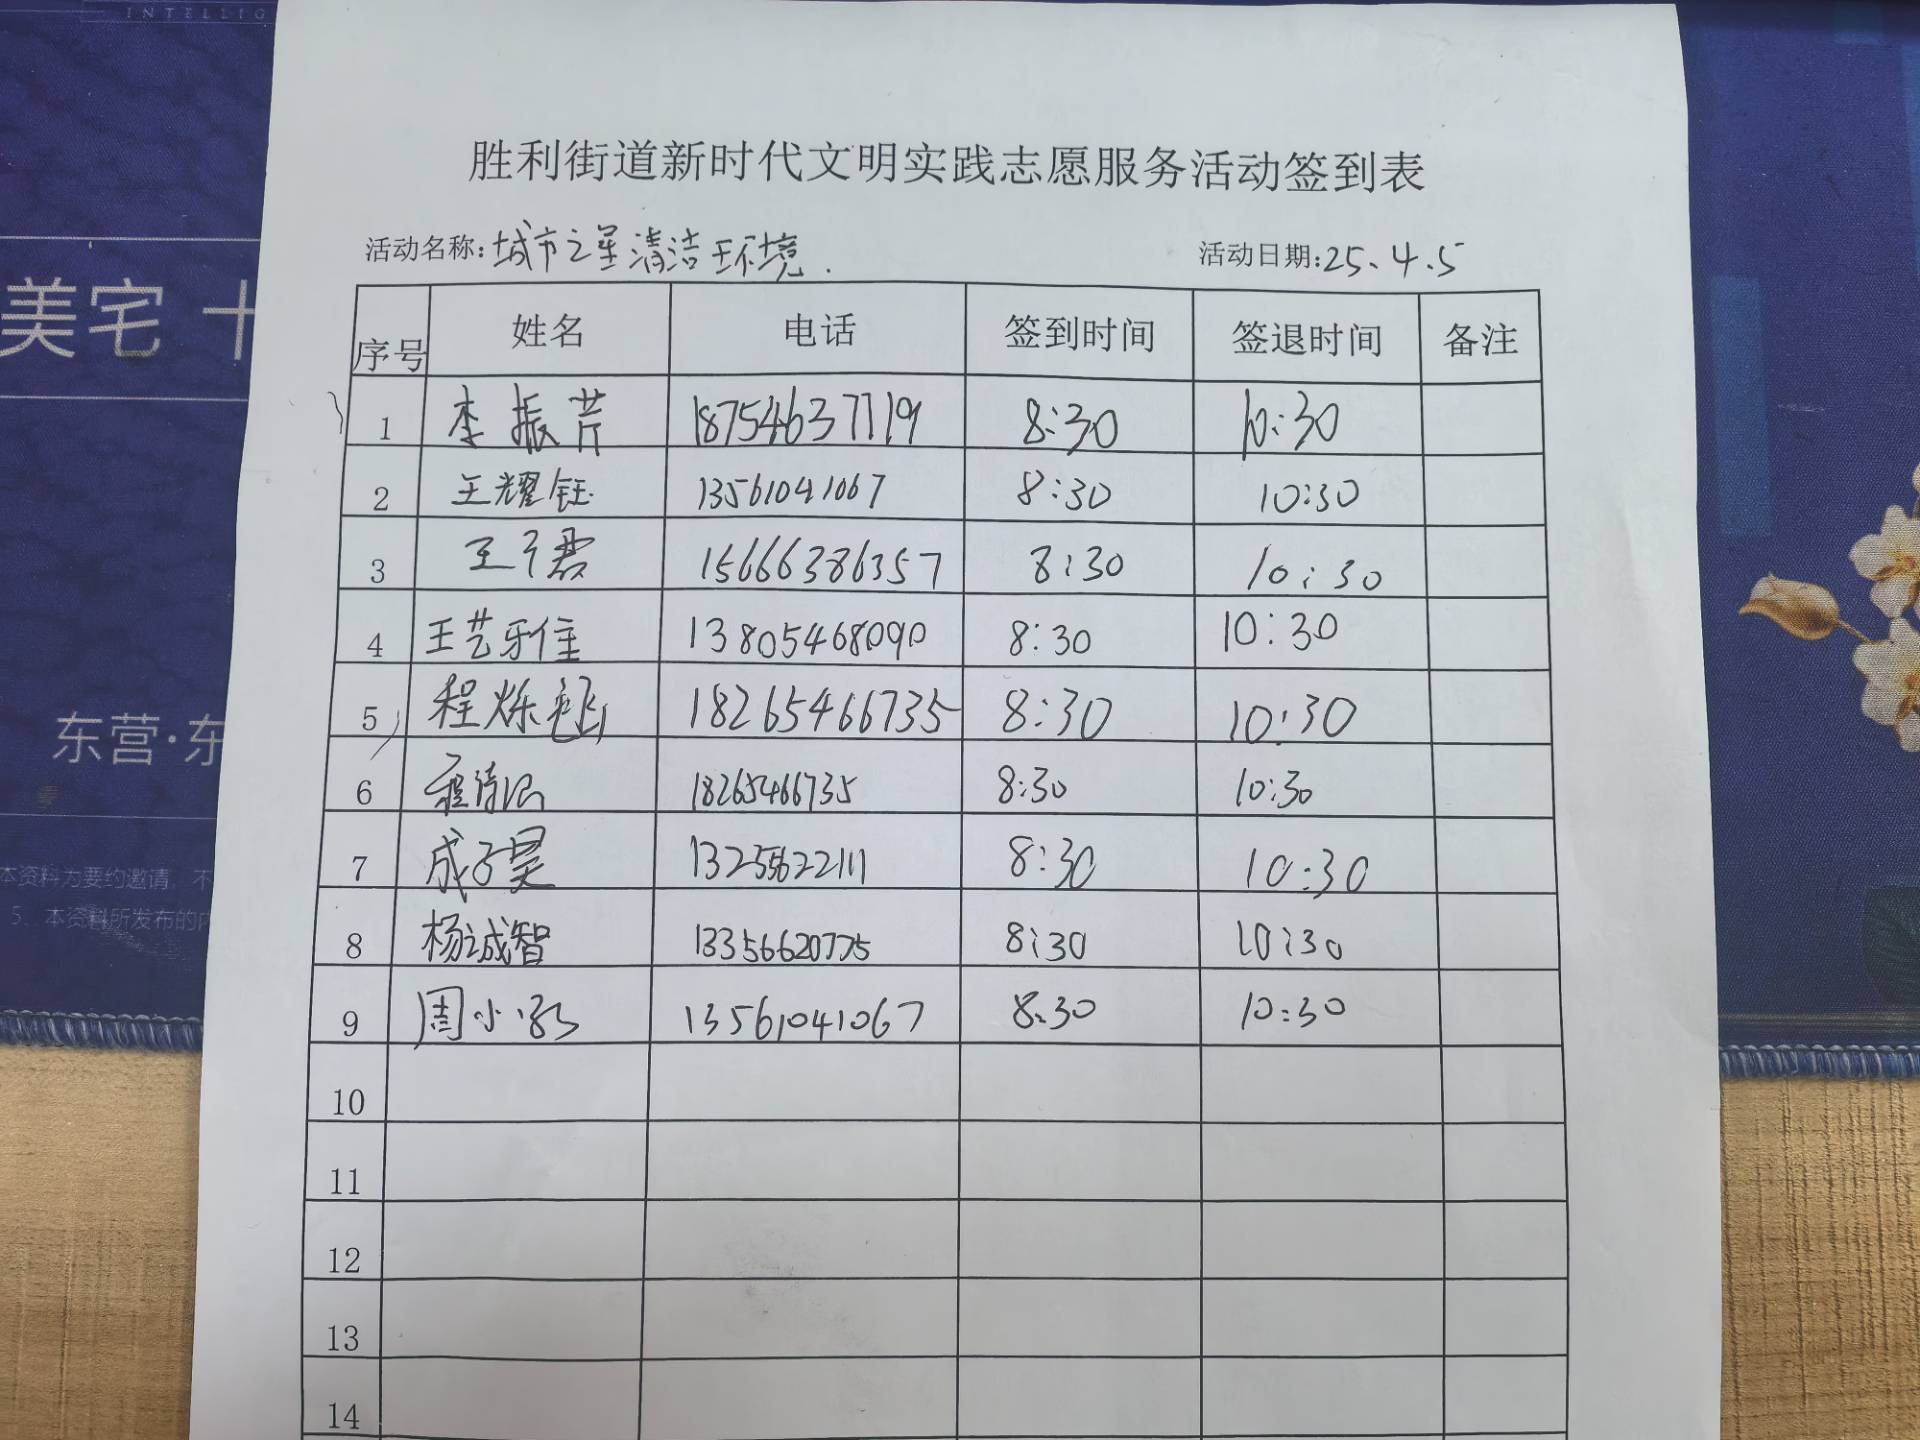 INTELLIG
美宅 十
东营·东
本资料为要约邀请，不
5、本资料所发布的内
胜利街道新时代文明实践志愿服务活动签到表
活动名称: 城市之星清洁环境. 活动日期: 25.4.5
序号 姓名 电话 签到时间 签退时间 备注
1 李振芹 18754637719 8:30 10:30
2 王耀钰 13561041067 8:30 10:30
3 王子君 15666386357 8:30 10:30
4 王艺雅佳 13805468090 8:30 10:30
5 程烁 18265466735 8:30 10:30
6 程 18265466735 8:30 10:30
7 成子昊 13255622111 8:30 10:30
8 杨诚智 13356620775 8:30 10:30
9 周小 13561041067 8:30 10:30
10
11
12
13
14